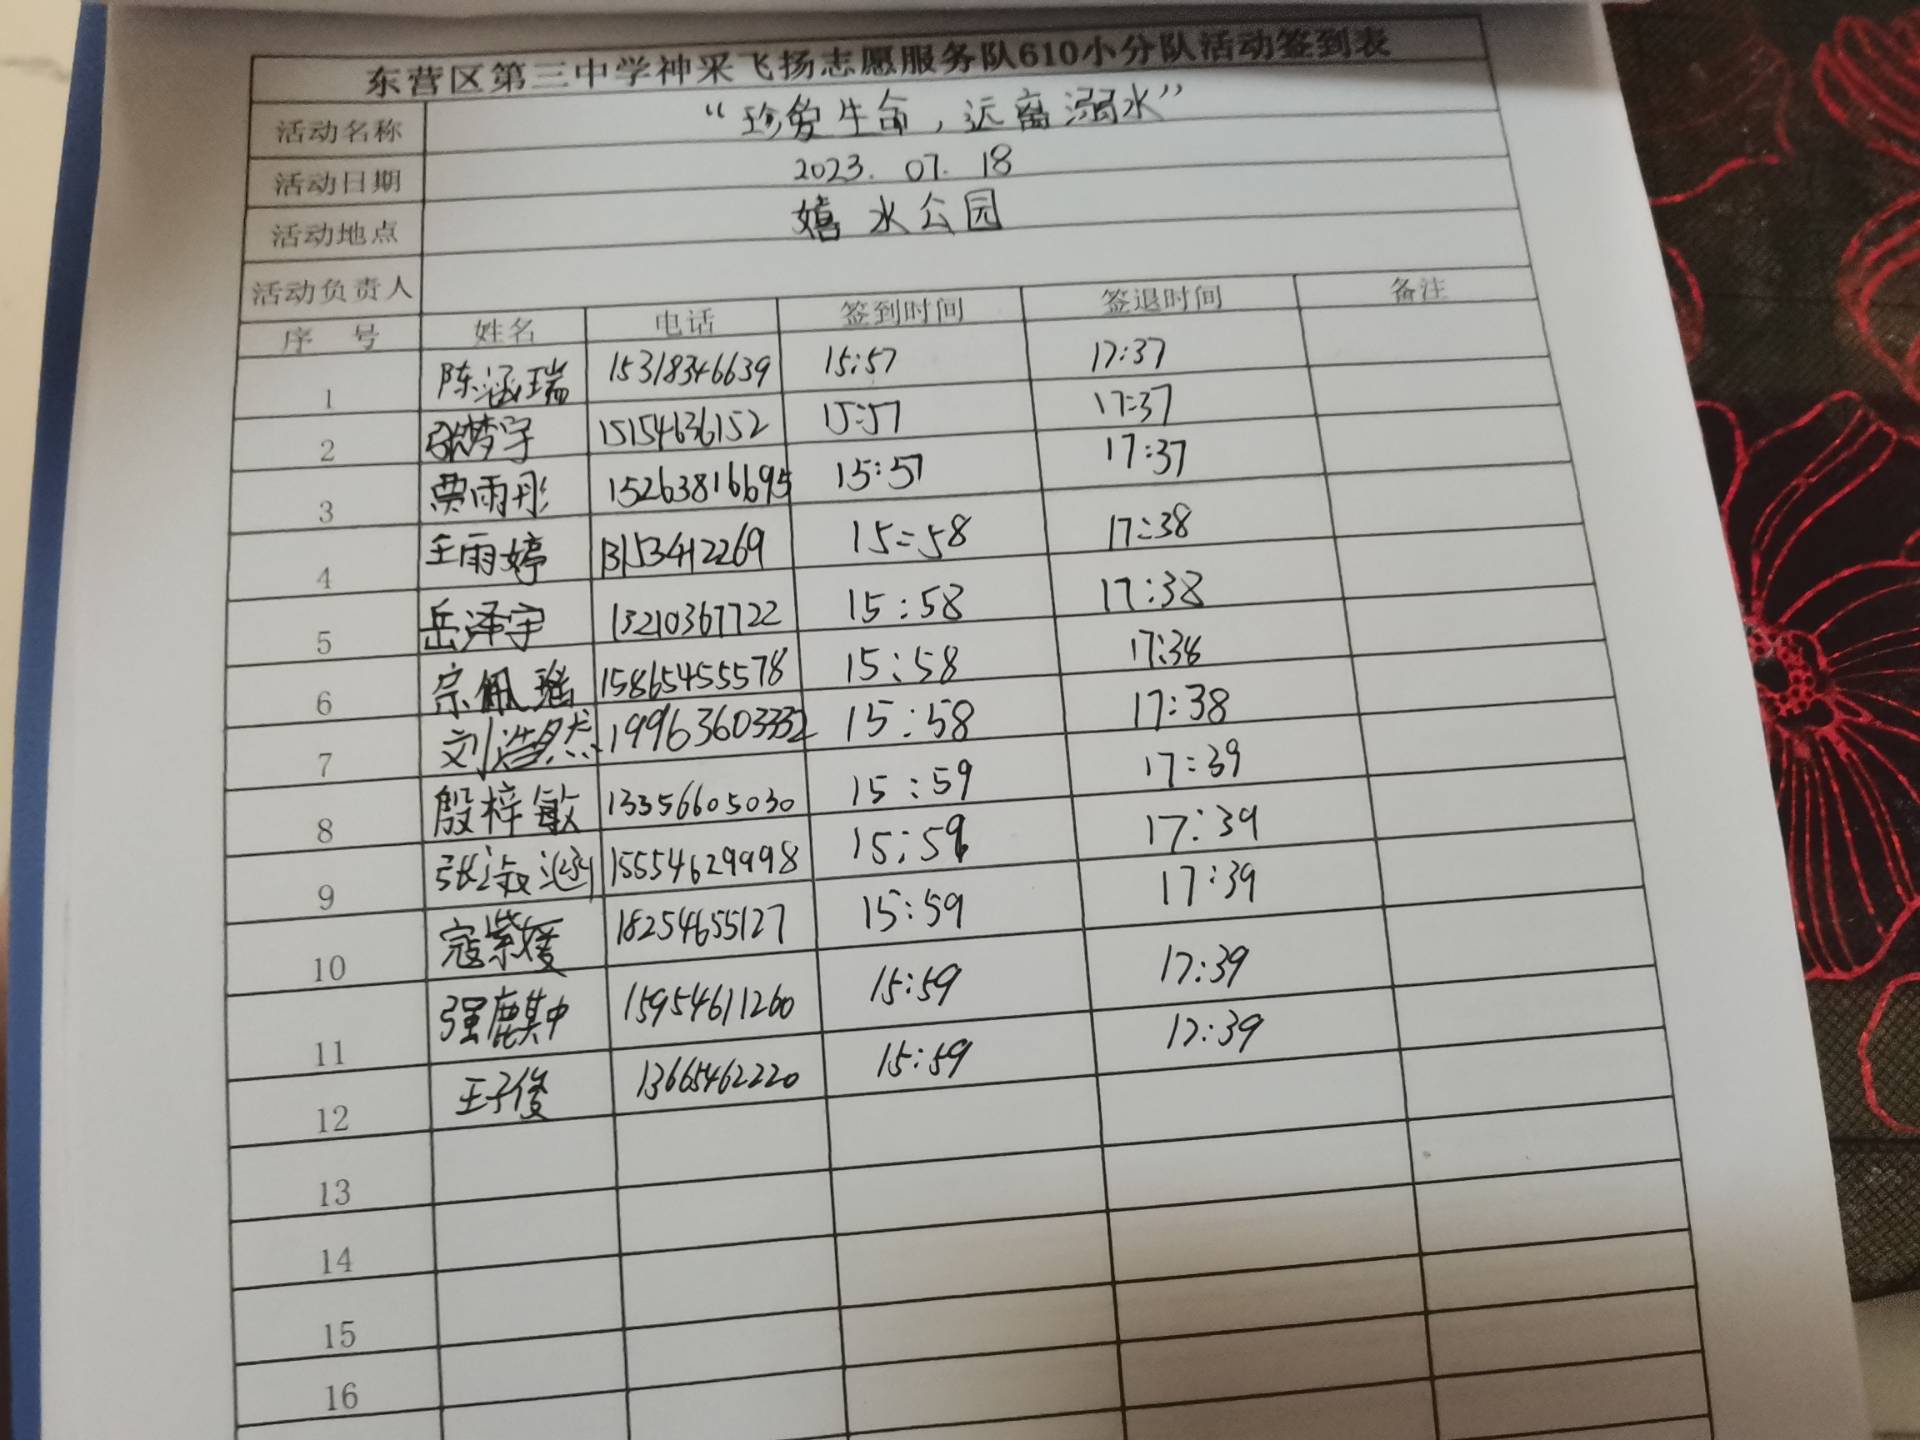 东营区第三中学神采飞扬志愿服务队610小分队活动签到表
活动名称 “珍爱生命，远离溺水”
活动日期 2023. 07. 18
活动地点 嬉水公园
活动负责人
序 号 姓名 电话 签到时间 签退时间 备注
1 陈涵瑞 15318346639 15:57 17:37
2 张梦宇 15154636152 15:57 17:37
3 贾雨彤 15263816695 15:57 17:37
4 王雨婷 13153412269 15:58 17:38
5 岳泽宇 13210367722 15:58 17:38
6 宗佩瑶 15865455578 15:58 17:38
7 刘浩然 19963603332 15:58 17:38
8 殷梓敏 13356605030 15:59 17:39
9 张 15554629998 15:59 17:39
10 寇紫媛 18254655127 15:59 17:39
11 强麒中 15954611260 15:59 17:39
12 王子俊 13665462220 15:59 17:39
13
14
15
16